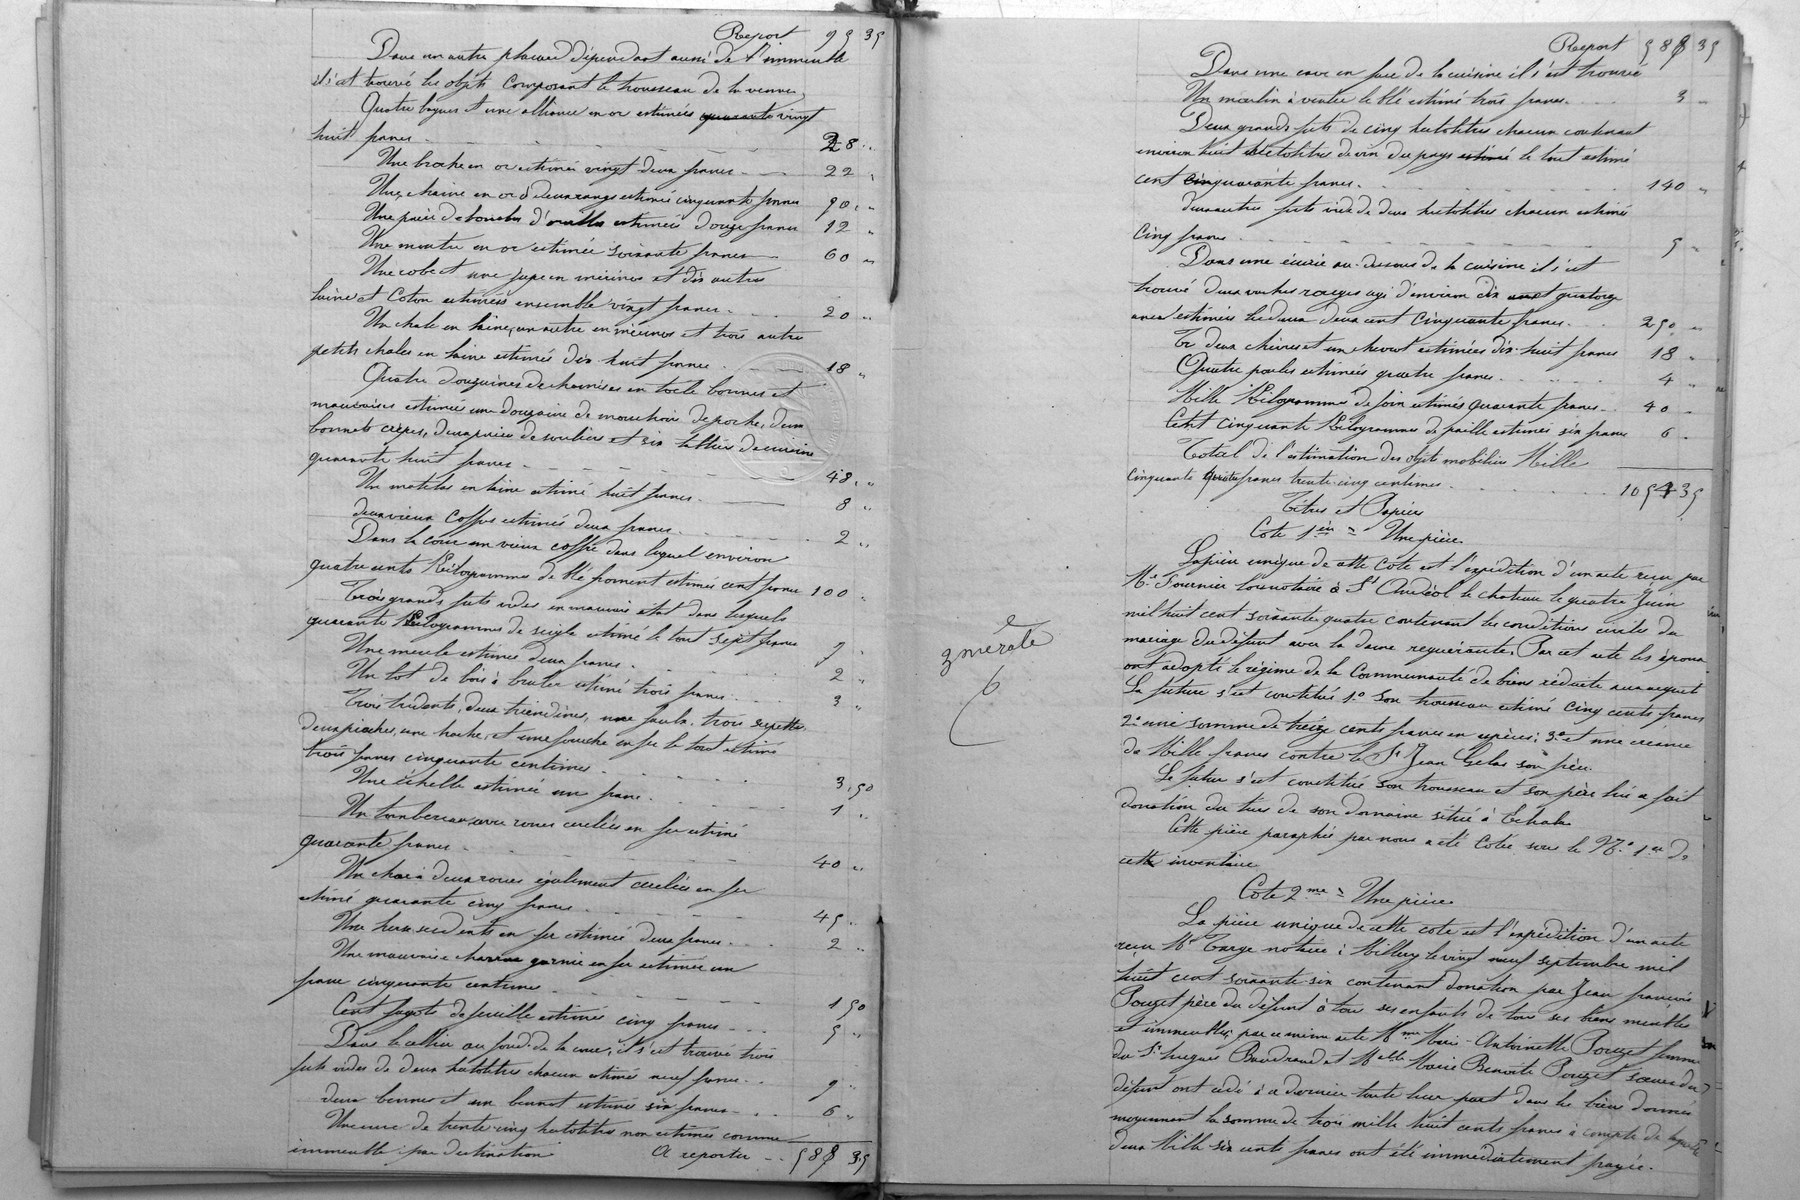 Report 95 35
Dans un autre placard dépendant aussi de l'immeuble
il s'est trouvé les objets composant le trousseau de la veuve,
Quatre bagues et une alliance en or estimées quarante vingt
huit francs 28 "
Une broche en or estimée vingt deux francs 22 "
Une chaine en or à deux rangs estimée cinquante francs 50 "
Une paire de boucles d'oreilles estimées douze francs 12 "
Une montre en or estimée soixante francs 60 "
Une robe et une jupe en mérinos et dix autres
laine et coton estimées ensemble vingt francs 20 "
Un chale en laine, un autre en mérinos et trois autre
petits chales en laine estimés dix huit francs 18 "
Quatre douzaines de chemises en toile bonnes et
mauvaises estimées une douzaine de mouchoirs de poche, deux
bonnets crêpes, deux paires de souliers et six tabliers de cuisine
quarante huit francs 48 "
Un matelas en laine estimé huit francs 8 "
deux vieux coffres estimés deux francs 2 "
Dans la cour un vieux coffre dans lequel environ
quatre cents Kilogrammes de blé froment estimés cent francs 100 "
Trois grands futs vides en mauvais état dans lesquels
quarante Kilogrammes de seigle estimé le tout sept francs 7 "
Une meule estimée deux francs 2 "
Un lot de bois à bruler estimé trois francs 3 "
Trois tridents, deux triandines, une faulx, trois serpettes
deux pioches, une hache, et une fourche en fer le tout estimé
trois francs cinquante centimes 3,50
Une échelle estimée un franc 1 "
Un tombereau avec roues cerclées en fer estimé
quarante francs 40 "
Un char à deux roues également cerclées en fer
estimé quarante cinq francs 45 "
Une herse dents en fer estimée deux francs 2 "
Une mauvaise charrue garnie en fer estimée un
franc cinquante centimes 1 50
Cent fagots de feuille estimés cinq francs 5 "
Dans le cellier au fond de la cour, il s'est trouvé trois
futs vides de deux hectolitres chacun estimés neuf francs 9 "
deux bennes et un bennot estimés six francs 6 "
Une cuve de trente-cinq hectolitres non estimée comme
immeuble par destination A reporter 588 35
Report 588 35
Dans une cave en face de la cuisine il s'est trouvé
Un moulin à venter le blé estimé trois francs 3 "
Deux grands futs de cinq hectolitres chacun contenant
environ huit hectolitres de vin du pays estimé le tout estimé
cent cinquarante francs 140 "
deux autres futs vides de deux hectolitres chacun estimés
cinq francs 5 "
Dans une écurie au-dessous de la cuisine il s'est
trouvé deux vaches rouges agées d'environ dix et quatorze
ans estimées les deux deux cent cinquante francs 250 "
Et deux chèvres et un chevrot estimées dix huit francs 18 "
Quatre poules estimées quatre francs 4 "
Mille Kilogrammes de foin estimés quarante francs 40 "
Cent cinquante Kilogrammes de paille estimés six francs 6 "
Total de l'estimation des objets mobiliers Mille
cinquante quatre francs trente-cinq centimes 1054 35
Titres et Papiers
Cote 1ère = Une pièce
La pièce unique de cette cote est l'expédition d'un acte reçu par
Me Fournier lors notaire à St Andéol le chateau le quatre Juin
mil huit cent soixante quatre contenant les conditions civiles du
mariage du défunt avec la dame requérante. Par cet acte les époux
ont adopté le régime de la Communauté de biens réduite aux acquets
La future s'est constitués 1o son trousseau estimé cinq cents francs
2o une somme de treize cents francs en espèces; 3o et une créance
de Mille francs contre le Sr Jean Gelas son père
Le futur s'est constitué son trousseau et son père lui a fait
donation du tiers de son domaine situé à Echalas
Cette pièce paraphée par nous a été cotée sous le No 1er de
cette inventaire
Cote 2me = Une pièce
La pièce unique de cette cote est l'expédition d'un acte
reçu Me Targe notaire à Millery le vingt neuf septembre mil
huit cent soixante six contenant donation par Jean françois
Pouzet père du défunt à tous ses enfants de tous ses biens meubles
et immeubles, par ce même acte Mme Marie-Antoinette Pouzet femme
du Sr hugues Baudrand et Melle Marie Benoite Pouzet soeurs du
défunt ont cédé à ce dernier toute leur part dans les biens donnés
moyennant la somme de trois mille huit cents francs à compte de laquelle
deux Mille six cents francs ont été immédiatement payés.